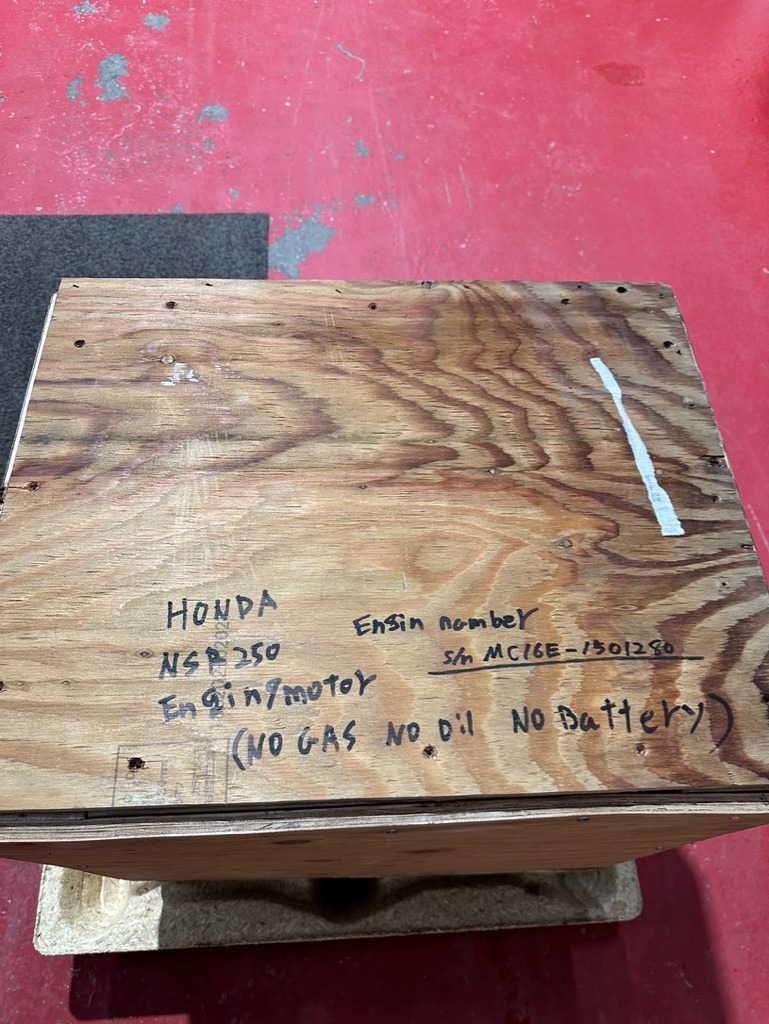 HONDA
NSR 250
Engin/motor
Engin namber
s/n MC16E-1501280
(NO GAS NO Oil NO Battery)